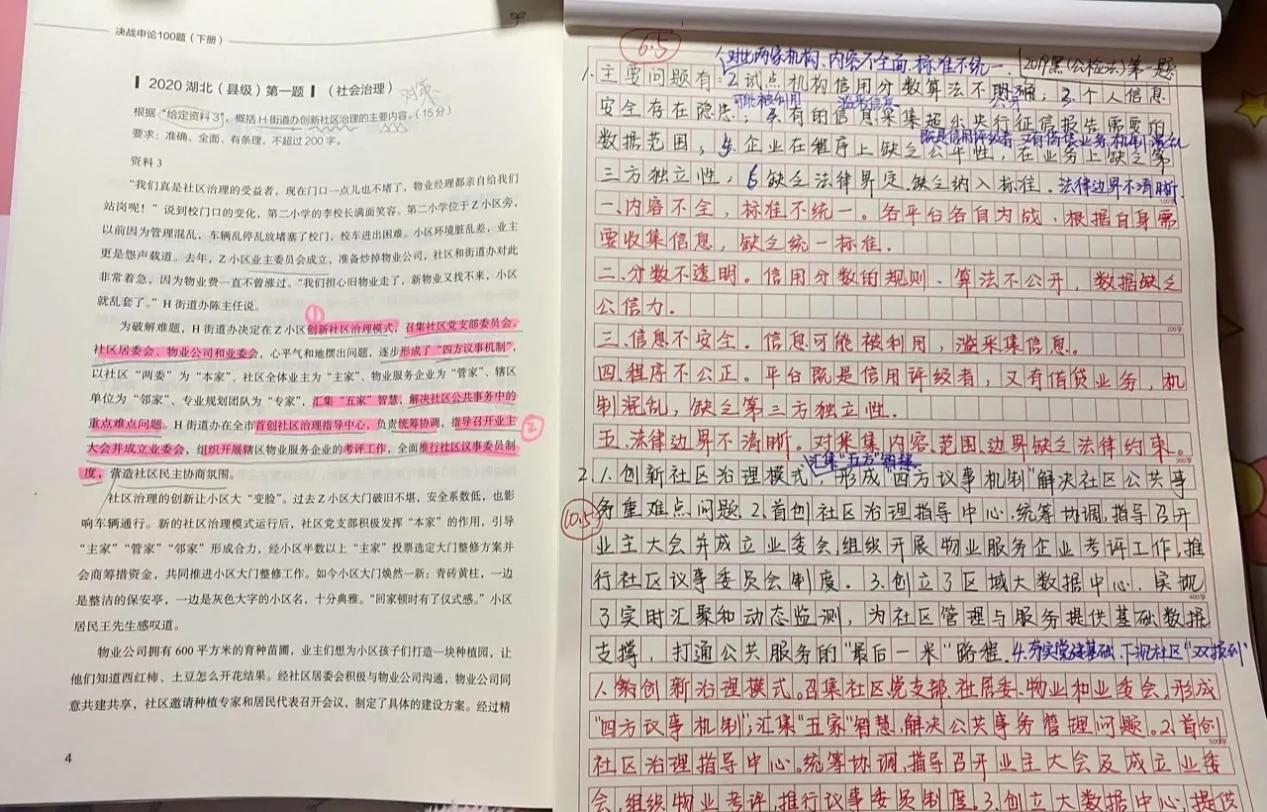 决战申论100题（下册）
2020湖北（县级）第一题 （社会治理）
对策
根据“给定资料3”，概括H街道办创新社区治理的主要内容。（15分）
要求：准确、全面、有条理，不超过200字。
资料3
“我们真是社区治理的受益者，现在门口一点儿也不堵了，物业经理都亲自给我们
站岗呢！”说到校门口的变化，第二小学的李校长满面笑容。第二小学位于Z小区旁，
以前因为管理混乱，车辆乱停乱放堵塞了校门，校车进出困难。小区环境脏乱差，业主
更是怨声载道。去年，Z小区业主委员会成立，准备炒掉物业公司，社区和街道办对此
非常着急，因为物业费一直不曾涨过。“我们担心旧物业走了，新物业又找不来，小区
就乱套了。”H街道办陈主任说。
①
为破解难题，H街道办决定在Z小区创新社区治理模式，召集社区党支部委员会、
社区居委会、物业公司和业委会，心平气和地摆出问题，逐步形成了“四方议事机制”，
以社区“两委”为“本家”、社区全体业主为“主家”、物业服务企业为“管家”、辖区
单位为“邻家”、专业规划团队为“专家”，汇集“五家”智慧，解决社区公共事务中的
重点难点问题。H街道办在全市首创社区治理指导中心，负责统筹协调，指导召开业主
②
大会并成立业委会，组织开展辖区物业服务企业的考评工作，全面推行社区议事委员制
度，营造社区民主协商氛围。
社区治理的创新让小区大“变脸”。过去Z小区大门破旧不堪，安全系数低，也影
响车辆通行。新的社区治理模式运行后，社区党支部积极发挥“本家”的作用，引导
“主家”“管家”“邻家”形成合力，经小区半数以上“主家”投票选定大门整修方案并
会商筹措资金，共同推进小区大门整修工作。如今小区大门焕然一新：青砖黄柱，一边
是整洁的保安亭，一边是灰色大字的小区名，十分典雅。“回家顿时有了仪式感。”小区
居民王先生感叹道。
物业公司拥有600平方米的育种苗圃，业主们想为小区孩子们打造一块种植园，让
他们知道西红柿、土豆怎么开花结果。经社区居委会积极与物业公司沟通，物业公司同
意共建共享，社区邀请种植专家和居民代表召开会议，制定了具体的建设方案。经过精
4
6.5
1.对比两家机构、内容不全面、标准不统一.
2019黑(公检法)第一题
1.主要问题有:2试点机构信用分数算法不明确；3.个人信息
可能被利用 滥采信息
安全存在隐患；4.有的信息采集超出央行征信报告需要的
既是信用评级者，又有借贷业务，机制混乱
数据范围；5.企业在程序上缺乏公平性，在业务上缺乏第
三方独立性；6缺乏法律界定.缺乏纳入标准. 法律边界不清晰
100字
一、内容不全，标准不统一。各平台各自为战，根据自身需
要收集信息，缺乏统一标准.
二、分数不透明。信用分数的规则、算法不公开，数据缺乏
公信力.
200字
三、信息不安全。信息可能被利用，滥采集信息。
四、程序不公正。平台既是信用评级者，又有借贷业务，机
制混乱，缺乏第三方独立性.
五、法律边界不清晰。对采集内容、范围、边界缺乏法律约束。
300字
汇集“五家”智慧
2.1.创新社区治理模式，形成“四方议事机制”解决社区公共事
10.5
务重难点问题.2.首创社区治理指导中心.统筹协调,指导召开
业主大会并成立业委会,组织开展物业服务企业考评工作,推
行社区议事委员会制度。3.创立了区域大数据中心.实现
400字
了实时汇聚和动态监测，为社区管理与服务提供基础数据
支撑，打通公共服务的“最后一米”路程.4.夯实党建基础、下沉社区“双报到”
1.创新治理模式。召集社区党支部.社居委.物业和业委会,形成
“四方议事机制”；汇集“五家”智慧,解决公共事务管理问题。2.首创
500字
社区治理指导中心。统筹协调,指导召开业主大会及成立业委
会,组织物业考评,推行议事委员制度。3.创立大数据中心.提供